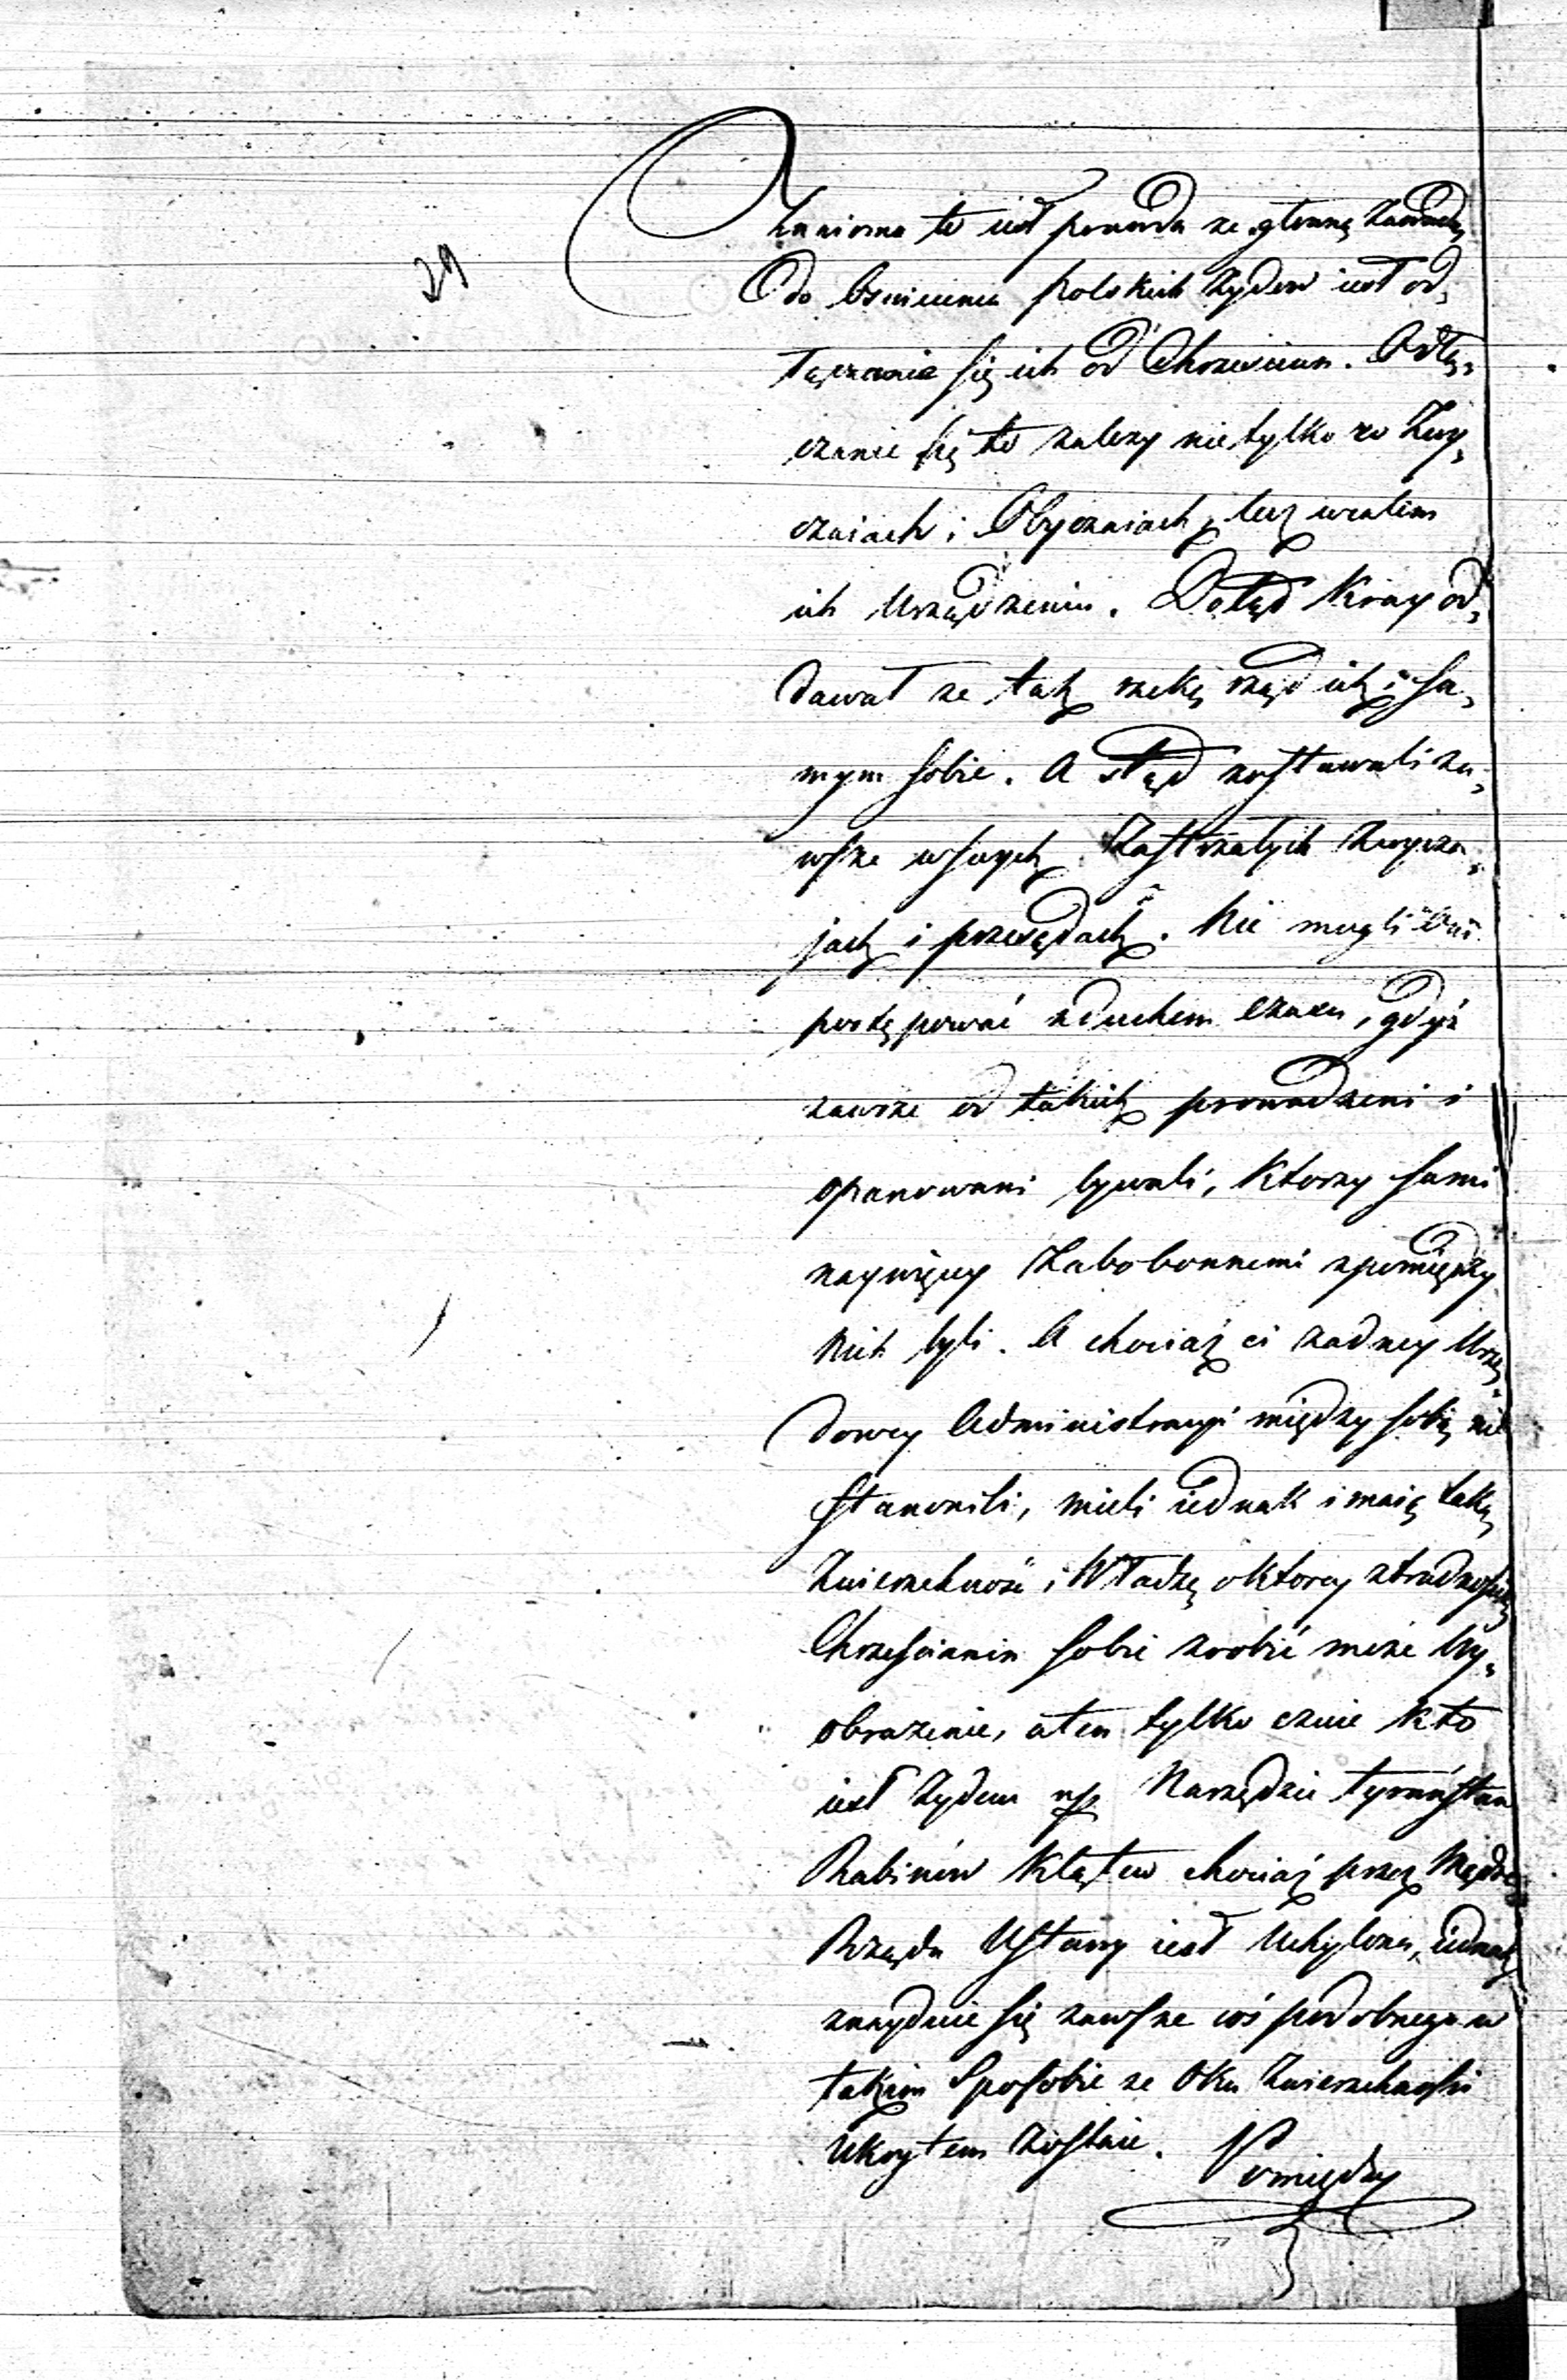 29
Znaioma to iest prawda ze główną Zawadą
Do Oswiecenia Polskich Zydow iest od,
łączanie się ich od Chrzescian. Odłą,
czanie się to zalezy nietylko w Zwy,
czaiach i Obyczaiach, lecz wcałem
ich Urządzeniu. Dotąd Kray od,
dawał ze tak rzekę rząd ich i sa,
mym sobie. A stąd zostawali za,
wsze wswych Zastrzałych Zwycza,
jach i przesądach. Nie mogli Oni
postępować zduchem czasu, gdyż
zawsze od takich prowadzeni i
opanowani bywali, Ktorzy sami
naywięcey Zabobonnemi zpomiędzy
Nich byli. A chociaż ci zadney Urzę,
dowey Administracyi między sobą nie
stanowili, mieli iednak i maią taką
Zwierzchność i Władzę oktorey ztrudnością
Chrzescianin sobie zrobić może Wy,
obrazenie, aten tylko czuie Kto
iest Zydem np Narzędzie tyraństwa
Rabinów Klątew chociaż przez Mądre
Rządu Ustawy iest Uchylona, iednak
znayduie się zawsze coś podobnego w
takim Sposobie ze Oku Zwierzchności
Ukrytem Zostaie.
Pomiędzy